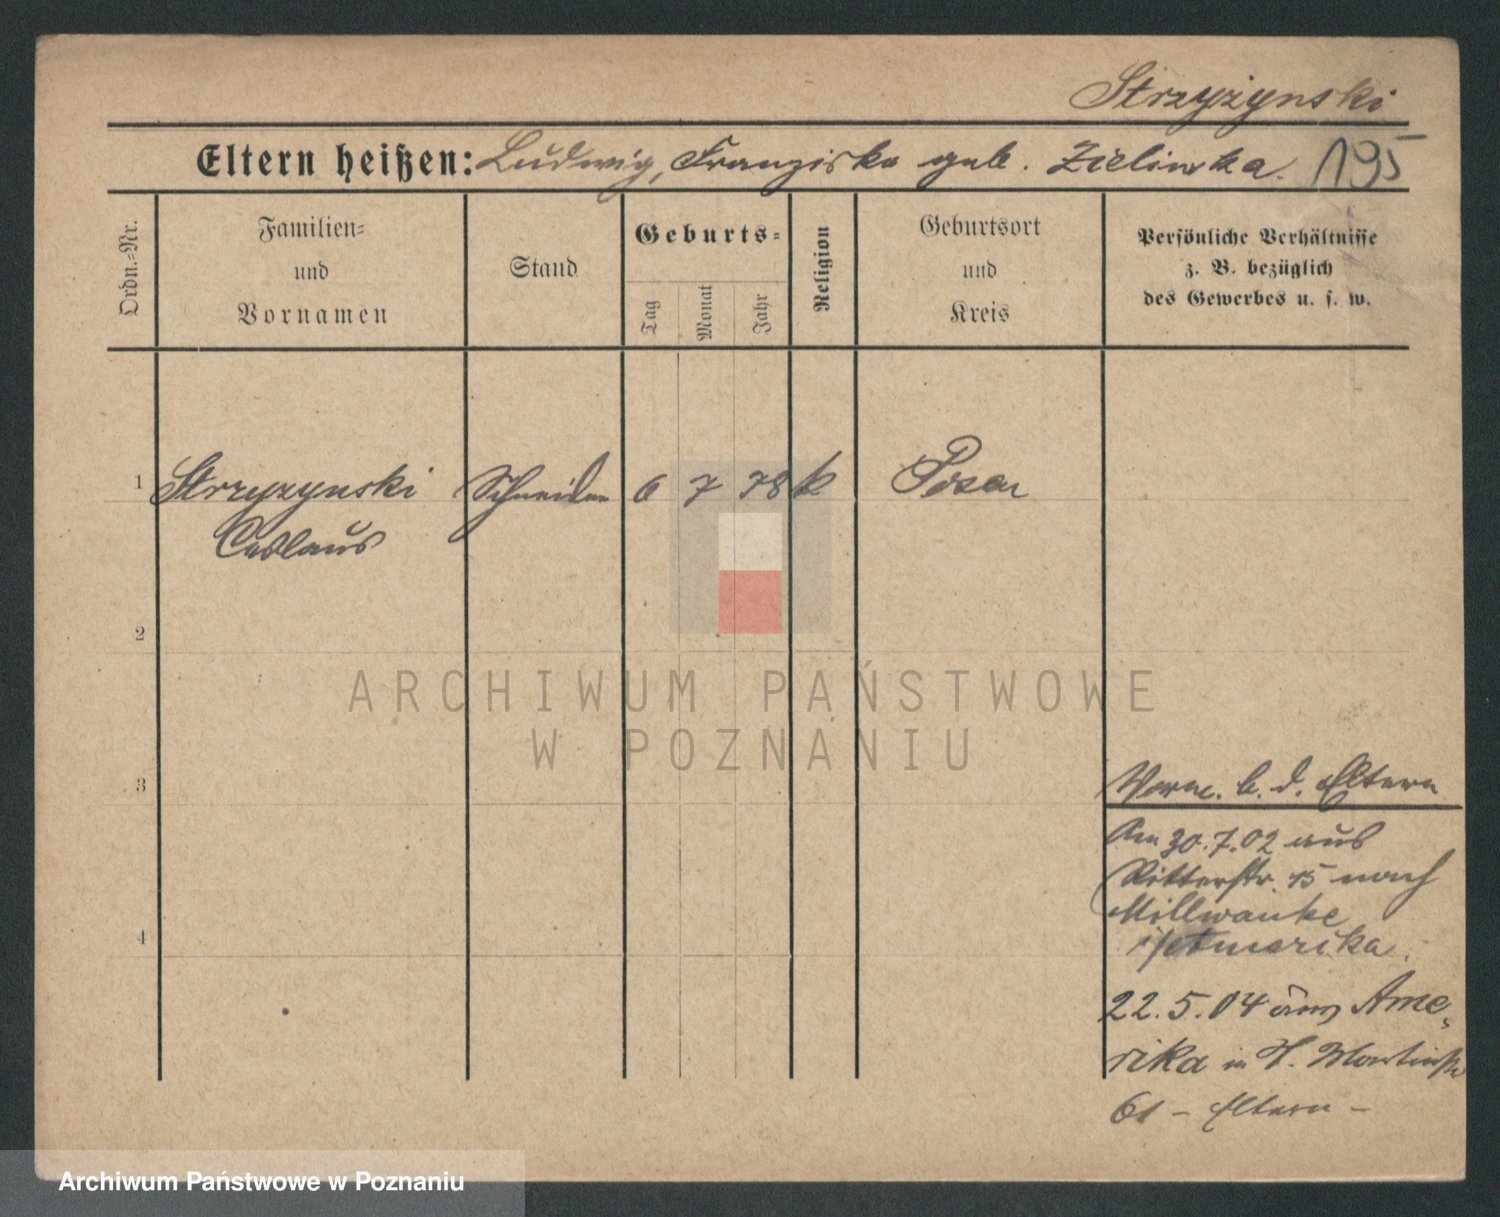 Strzyżynski
Eltern heißen: Ludwig, Franziska geb. Zielinska. 195
Ordn.-Nr.
Familien-
und
Vornamen
Stand
Geburts-
Tag
Monat
Jahr
Religion
Geburtsort
und
Kreis
Persönliche Verhältnisse
z. B. bezüglich
des Gewerbes u. s. w.
1 Strzyzynski Schneider 6 7 78 k Posen
Ceslaus
2
ARCHIWUM PAŃSTWOWE
W POZNANIU
3
b. d. Eltern
Am 30.7.02 aus
Ritterstr. 15 nach
Millwauke
i/Amerika.
4
22.5.04 aus Ame-
rika in St. Martinstr
61 – Eltern –
Archiwum Państwowe w Poznaniu